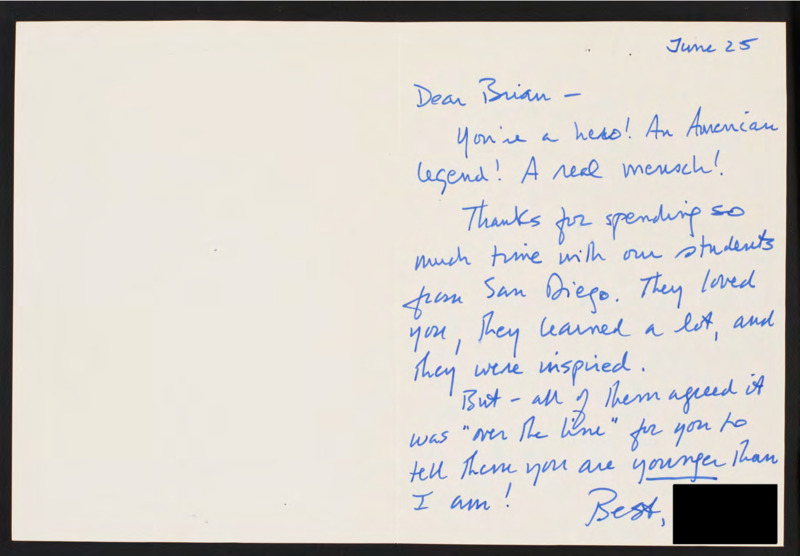 June 25
Dear Brian –
You're a hero! An American
legend! A real mensch!
Thanks for spending so
much time with our students
from San Diego. They loved
you, they learned a lot, and
they were inspired.
But – all of them agreed it
was "over the line" for you to
tell them you are younger than
I am!
Best,